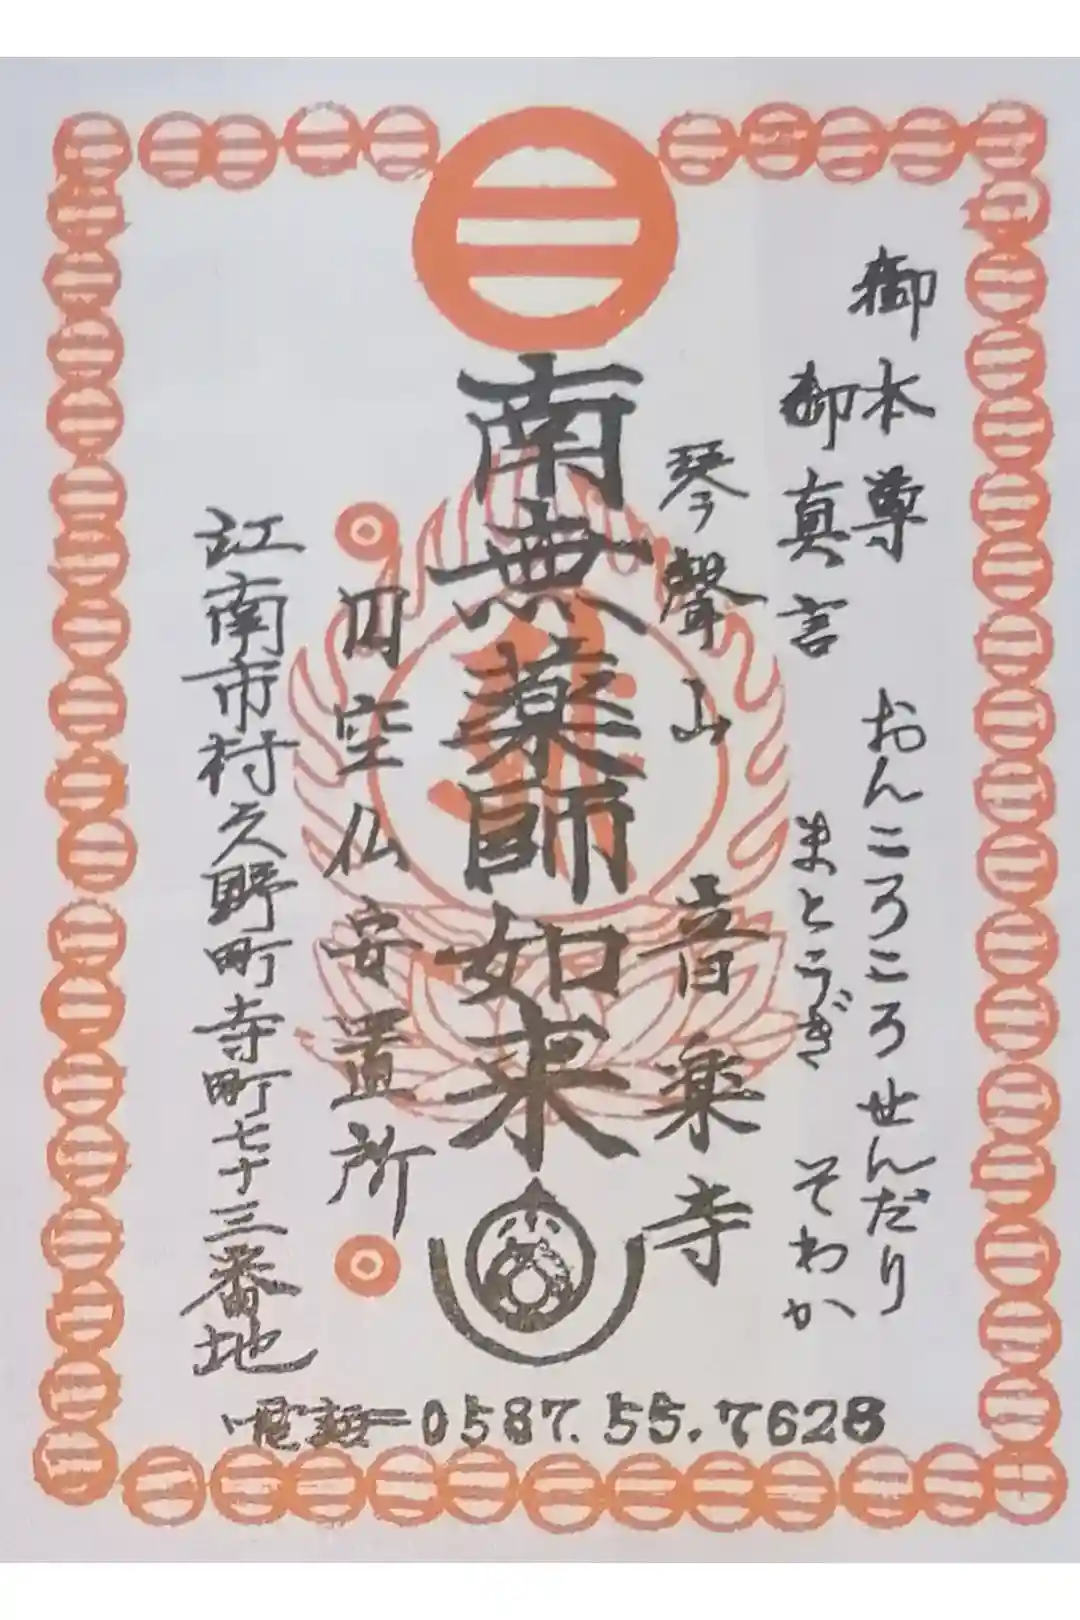 御本尊 おんころころ せんだり
御真言 まとうぎ そわか
琴聲山 音楽寺
南無薬師如来
円空仏安置所
江南市村久野町寺町七十三番地
電話=0587.55.7628